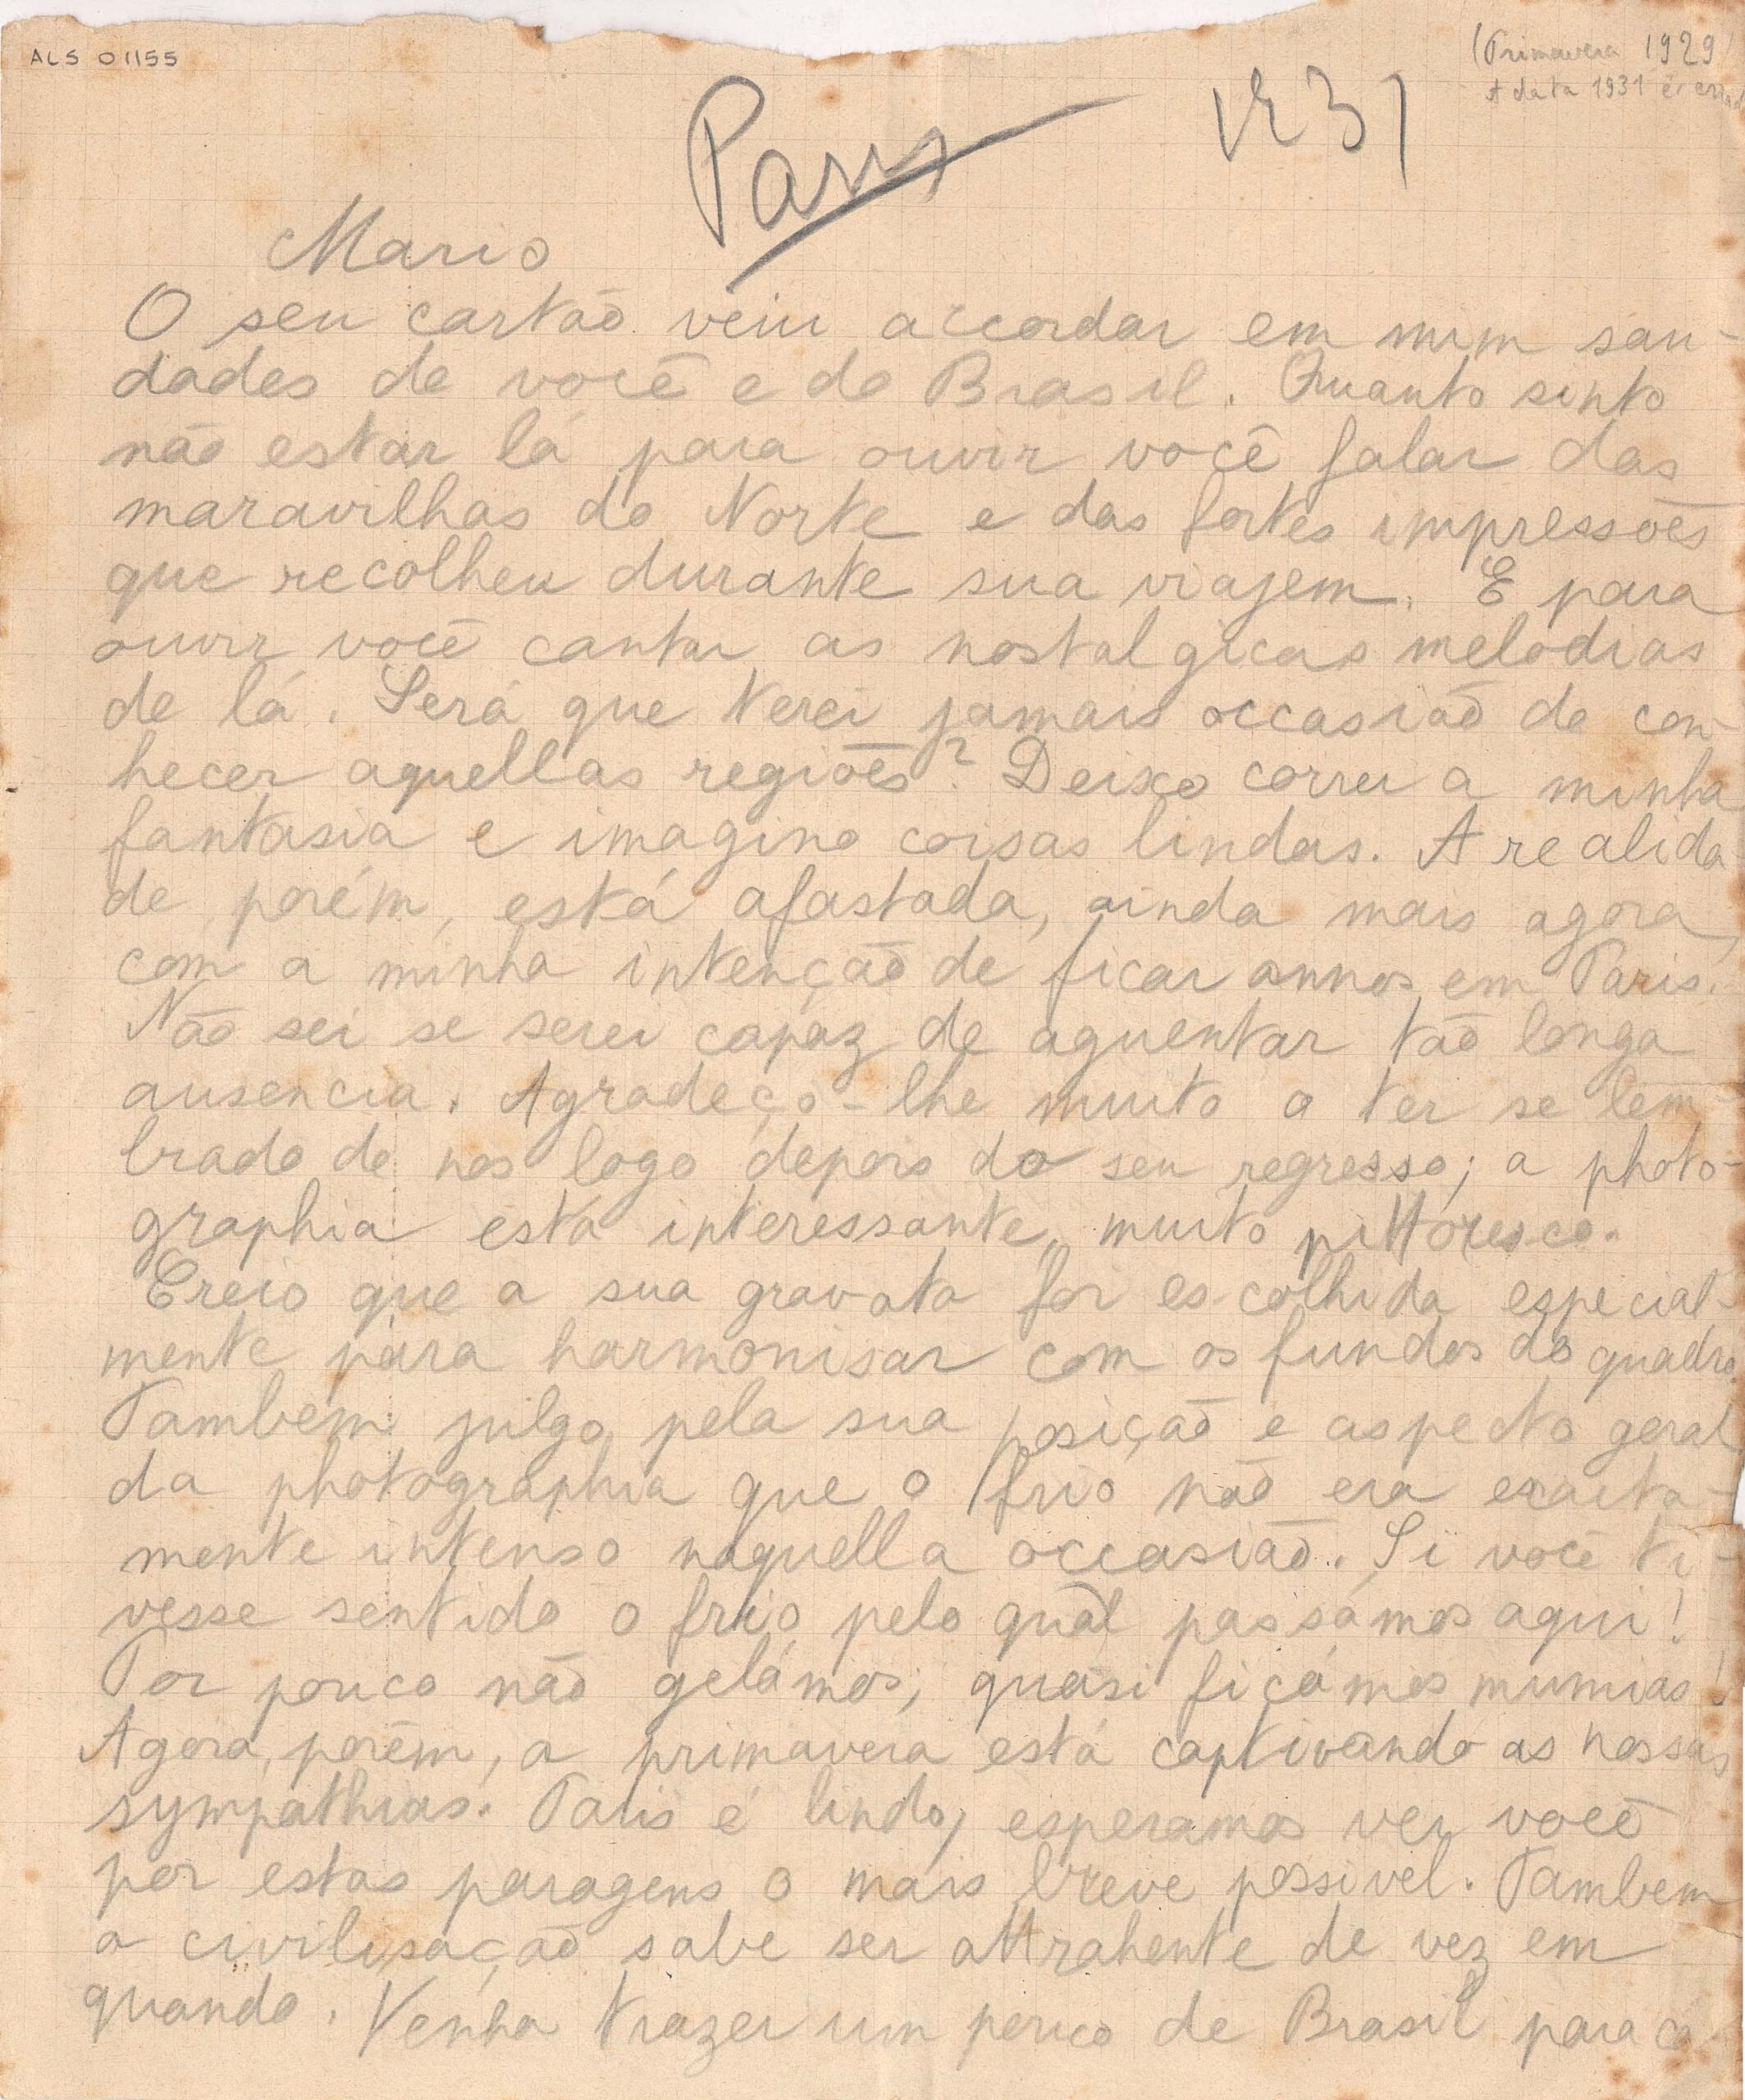 ALS 01155
(Primavera 1929)
A data 1931 é
Paris
31
Mario
O seu cartão veiu accordar em mim sau-
dades de você e do Brasil. Quanto sinto
não estar lá para ouvir você falar das
maravilhas do Norte e das fortes impressões
que recolheu durante sua viajem. E para
ouvir você cantar as nostalgicas melodias
de lá. Será que terei jamais occasião de con-
hecer aquellas regiões? Deixo correr a minha
fantasia e imagino coisas lindas. A realida
de porém, está afastada, ainda mais agora,
com a minha intenção de ficar annos em Paris.
Não sei se serei capaz de aguentar tão longa
ausencia. Agradeço-lhe muito o ter se lem-
brado de nos logo depois do seu regresso; a photo-
graphia está interessante, muito pittoresca.
Creio que a sua gravata foi escolhida especial-
mente para harmonisar com os fundos do quadro.
Tambem julgo pela sua posição e aspecto geral
da photographia que o frio não era exacta-
mente intenso naquella occasião. Si você ti-
vesse sentido o frio pelo qual passámos aqui!
Por pouco não gelámos, quasi ficámos mumias!
Agora, porém, a primavera está captivando as nossas
sympathias. Paris é lindo, esperamos ver você
por estas paragens o mais breve possivel. Tambem
a civilisação sabe ser attrahente de vez em
quando. Venha trazer um pouco de Brasil para cá.